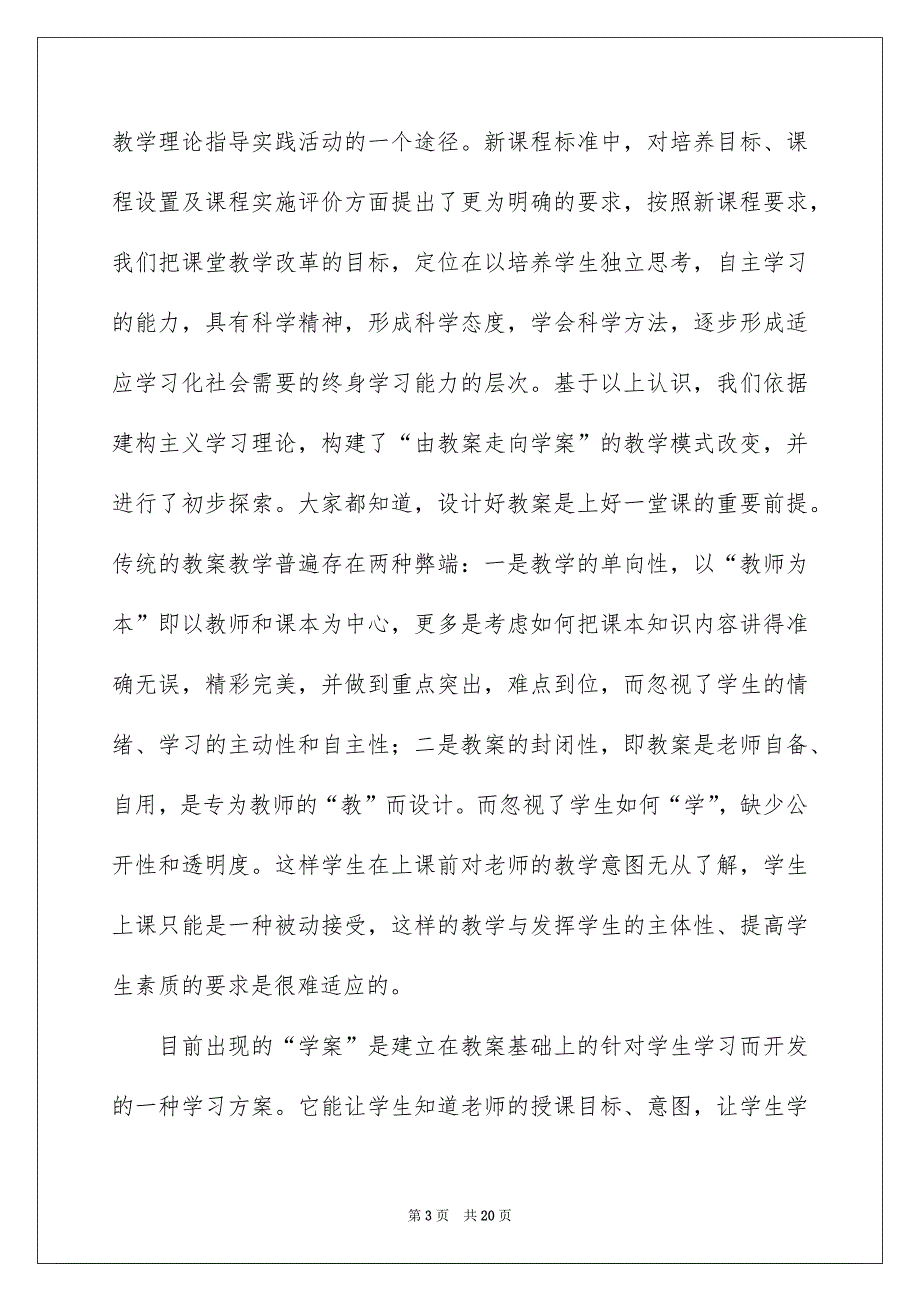 教学理论指导实践活动的一个途径。新课程标准中，对培养目标、课
程设置及课程实施评价方面提出了更为明确的要求，按照新课程要求，
我们把课堂教学改革的目标，定位在以培养学生独立思考，自主学习
的能力，具有科学精神，形成科学态度，学会科学方法，逐步形成适
应学习化社会需要的终身学习能力的层次。基于以上认识，我们依据
建构主义学习理论，构建了“由教案走向学案”的教学模式改变，并
进行了初步探索。大家都知道，设计好教案是上好一堂课的重要前提。
传统的教案教学普遍存在两种弊端：一是教学的单向性，以“教师为
本”即以教师和课本为中心，更多是考虑如何把课本知识内容讲得准
确无误，精彩完美，并做到重点突出，难点到位，而忽视了学生的情
绪、学习的主动性和自主性；二是教案的封闭性，即教案是老师自备、
自用，是专为教师的“教”而设计。而忽视了学生如何“学”，缺少公
开性和透明度。这样学生在上课前对老师的教学意图无从了解，学生
上课只能是一种被动接受，这样的教学与发挥学生的主体性、提高学
生素质的要求是很难适应的。
目前出现的“学案”是建立在教案基础上的针对学生学习而开发
的一种学习方案。它能让学生知道老师的授课目标、意图，让学生学
第 3 页 共 20 页